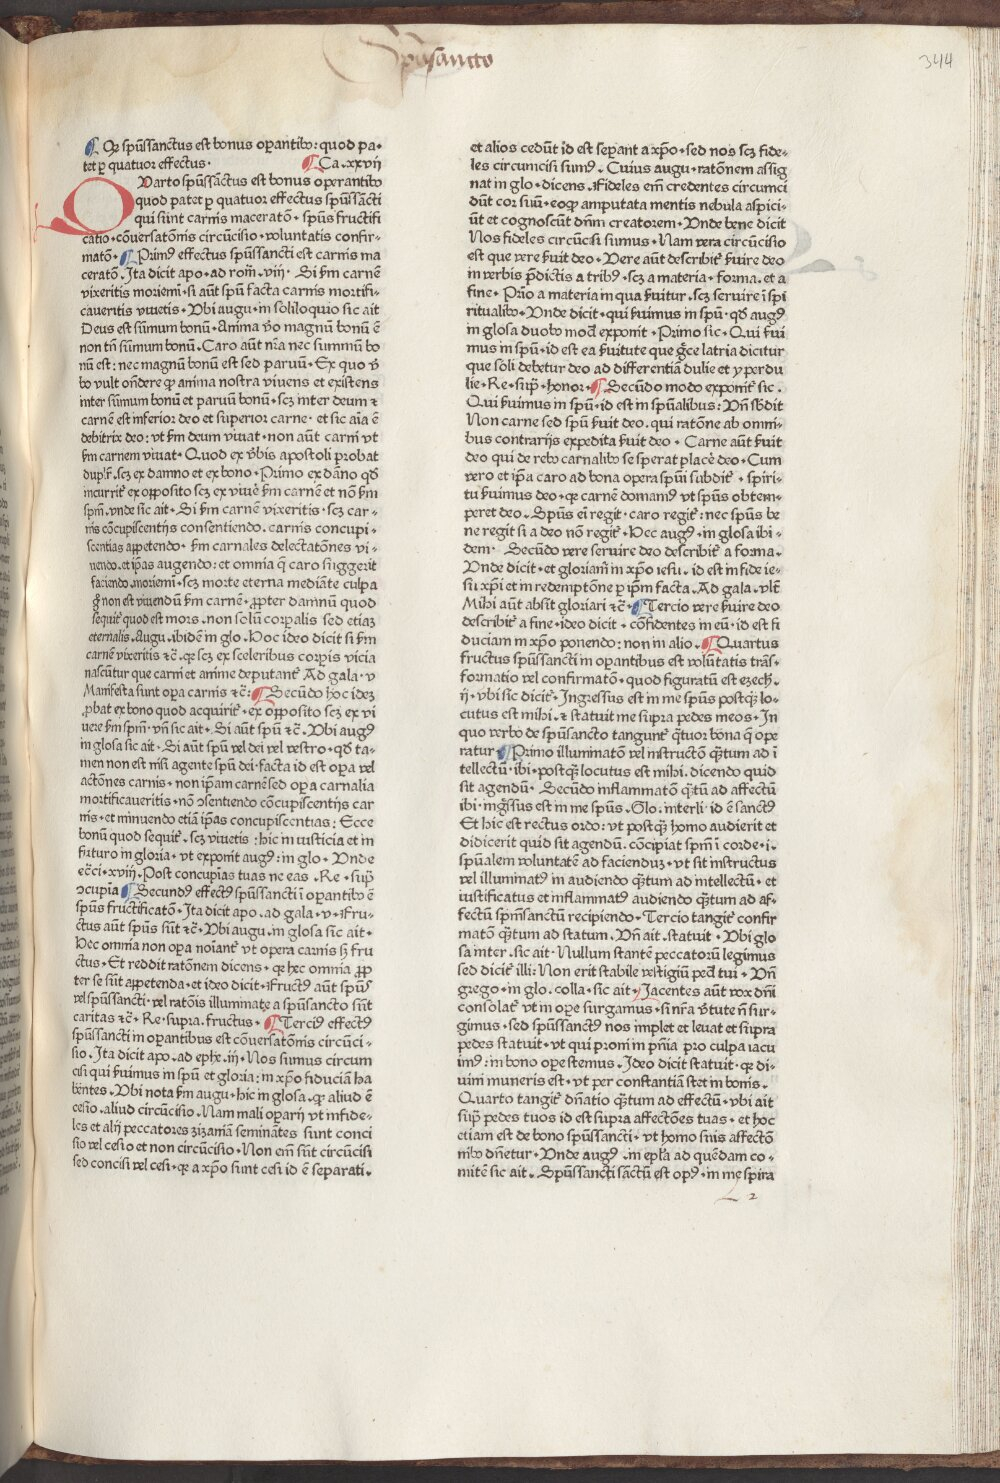 Spūsancto
344
¶ Qꝙ spūssanctus est bonus operantibꝰ: quod pa⸗
tet ꝑ quatuor effectus· ¶ Ca.xxvij
QUarto spūssāctus est bonus operantibꝰ
quod patet ꝑ quatuor effectus spūssācti
qui sunt carnis maceratō · spūs fructifi
catio · cōuersatōnis circūcisio · voluntatis confir⸗
matō · ¶ Primꝰ effectus spūssancti est carnis ma
ceratō · Ita dicit apo · ad roḿ · viij · Si ẜm carnē
vixeritis moriemī · si aūt spū facta carnis mortifi⸗
caueritis viuetis · Ubi augu · in soliloquio sic ait
Deus est sūmum bonū · Anima v̄o magnū bonū ē
non tn̄ sūmum bonū · Caro aūt nr̄a nec summū bo
nū est : nec magnū bonū est sed paruū · Ex quo v̄
bo vult ondere ꝙ anima nostra viuens et existens
inter sūmum bonū et paruū bonū · scꝫ inter deum ⁊
carnē est inferior deo et superior carne · et sic aīa ē
debitrix deo : vt ẜm deum viuat · non aūt carni vt
ẜm carnem viuat · Quod ex v̄bis apostoli probat
duplr̄ · scꝫ ex damno et ex bono · Primo ex dāno qd̄
incurrit̄ ex opposito scꝫ ex viuē ẜm carnē et nō ẜm
spm̄ · vnde sic ait · Si ẜm carnē vixeritis · scꝫ car⸗
nis cōcupiscentijs consentiendo · carnis concupi⸗
scentias appetendo · ẜm carnales delectatōnes vi⸗
uendo · et ip̄as augendo : et omnia ꝗ̄ caro suggerit
faciendo · moriemī · scꝫ morte eterna mediāte culpa
g̊ non est viuendū ẜm carnē · ꝓpter damnū quod
sequit̄ quod est mors · non solū corꝑalis sed etiaꝫ
eternalis · Augu · ibidem in glo · Hoc ideo dicit si ẜm
carnē vixeritis ⁊c̄ · ꝙ scꝫ ex sceleribus corꝑis vicia
nascūtur que carni et anime deputant̄ Ad gala · v
Manifesta sunt oꝑa carnis ⁊c̄ : ¶ Secūdo hoc ideꝫ
ꝓbat ex bono quod acquirit̄ · ex opposito scꝫ ex vi
uere ẜm spm̄ · vn̄ sic ait · Si aūt spū ⁊c̄ · Ubi augꝰ
in glosa sic ait · Si aūt spū vel dei vel vestro · qd̄ ta⸗
men non est nisi agente spū dei · facta id est oꝑa vel
actōnes carnis · non ip̄am carnē sed oꝑa carnalia
mortificaueritis · nō ꝯsentiendo cōcupiscentijs car
nis · et minuendo etiā ip̄as concupiscentias : Ecce
bonū quod sequit̄ · scꝫ viuetis : hic in iusticia et in
futuro in gloria · vt exponit augꝰ : in glo · Unde
ec̄ci · xviij · Post concupīas tuas ne eas · Re · sup̄
ꝯcupīa ¶ Secundꝰ effectꝰ spūssancti ī oꝑantibꝰ ē
spūs fructificatō · Ita dicit apo · ad gala · v · Fru⸗
ctus aūt spūs sūt ⁊c̄ · Ubi augu · in glosa sic ait ·
Hec omnia non oꝑa noīant̄ vt opera carnis sꝫ fru
ctus · Et reddit ratōnem dicens · ꝙ hec omnia ꝓp
ter se sūt appetenda · et ideo dicit · Fructꝰ aūt spūs
vel spūssancti · vel ratōis illuminate a spūsancto sūt
caritas ⁊c̄ · Re · supra · fructus · ¶ Terciꝰ effectꝰ
spūssancti in oꝑantibus est cōuersatōnis circūci⸗
sio · Ita dicit apo · ad ephe · iij · Nos sumus circum
cisi qui ẜuimus in spū et gloria : in xp̄o fiduciā ha
bentes · Ubi nota ẜm augu · hic in glosa · ꝙ aliud ē
cesio · aliud circūcisio · Nam mali oꝑarij vt infide⸗
les et alij peccatores zizaniā seminātes sunt conci
sio vel cesio et non circūcisio · Non em̄ sūt circūcisi
sed concisi vel cesi · ꝙ a xp̄o sunt cesi id ē separati ·
et alios cedūt id est seꝑant a xp̄o · sed nos scꝫ fide⸗
les circumcisi sumꝰ · Cuius augu · ratōnem assig
nat in glo · dicens · Fideles em̄ credentes circumci
dūt cor suū · eoꝙ amputata mentis nebula aspici⸗
ūt et cognoscūt dn̄m creatorem · Unde bene dicit
Nos fideles circūcisi sumus · Nam vera circūcisio
est que vere ẜuit deo · Vere aūt describit̄ ẜuire deo
in verbis p̄dictis a tribꝰ · scꝫ a materia · forma · et a
fine · Prīo a materia in qua ẜuitur · scꝫ seruire ī spi
ritualibꝰ · Unde dicit · qui ẜuimus in spū · qd̄ augꝰ
in glosa duobꝰ mod̄ exponit · Primo sic · Qui ẜui
mus in spū · id est ea ẜuitute que gr̄ce latria dicitur
que soli debetur deo ad differentiā dulie et yperdu
lie · Re · sup̄ · honor · ¶ Secūdo modo exponit̄ sic ·
Qui ẜuimus in spū · id est in spūalibus : Un̄ sb̄dit
Non carne sed spū ẜuit deo · qui ratōne ab omni⸗
bus contrarijs expedita ẜuit deo · Carne aūt ẜuit
deo qui de rebꝰ carnalibꝰ se sperat placē deo · Cum
vero et ip̄a caro ad bona opera spūi subdit̄ · spiri⸗
tu ẜuimus deo · ꝙ carnē domamꝰ vt spūs obtem⸗
peret deo · Spūs em̄ regit · caro regit̄ : nec spūs be
ne regit si a deo nō regit̄ · Hec augꝰ · in glosa ibi⸗
dem · Secūdo vere seruire deo describit̄ a forma ·
Unde dicit · et gloriam̄ in xp̄o iesu · id est in fide ie⸗
su xp̄i et in redemptōne ꝑ ip̄m facta · Ad gala · vlt̄
Mihi aūt absit gloriari ⁊c̄ · ¶ Tercio vere ẜuire deo
describit̄ a fine · ideo dicit · cōfidentes in eū · id est fi
duciam in xp̄o ponendo : non in alio · ¶ Quartus
fructus spūssancti in oꝑantibus est volūtatis trās⸗
formatio vel confirmatō · quod figuratū est ezech ·
ij · vbi sic dicit̄ · Ingressus est in me spūs postꝙ̄ lo⸗
cutus est mihi · ⁊ statuit me supra pedes meos · In
quo verbo de spūsancto tangunt̄ q̄tuor bona q̄ ope
ratur ¶ Primo illuminatōn vel instructō q̄tum ad ī
tellectū · ibi · postꝙ̄ locutus est mihi · dicendo quid
sit agendū · Secūdo inflammatōn q̄tū ad affectū
ibi · ingr̄ssus est in me spūs · Glo · interli · id ē sanctꝰ
Et hic est rectus ordo : vt postꝙ̄ homo audierit et
didicerit quid sit agendū · cōcipiat spm̄ ī corde · i ·
spūalem voluntatē ad faciendꝫ · vt sit instructus
vel illuminatꝰ in audiendo q̄tum ad intellectū · et
iustificatus et inflammatꝰ audiendo q̄tum ad af⸗
fectū spm̄sanctū recipiendo · Tercio tangit̄ confir
matō q̄tum ad statum · Un̄ ait · statuit · Ubi glo
sa inter · sic ait · Nullum stantē peccatorū legimus
sed dicit̄ illi : Non erit stabile vestigiū ped̄ tui · Un̄
grego · in glo · colla · sic ait · Jacentes aūt vox dn̄i
consolat̄ vt in oꝑe surgamus · si nr̄a v̄tute n̄ sur⸗
gimus · sed spūssanctꝰ nos implet et leuat et supra
pedes statuit · vt qui proni in pn̄ia pro culpa iacu
imꝰ : in bono oꝑe stemus · Ideo dicit statuit · ꝙ di⸗
uini muneris est · vt per constantiā stet in bonis ·
Quarto tangit̄ dn̄atio q̄tum ad effectū · vbi ait
sup̄ pedes tuos id est supra affectōes tuas · et hoc
etiam est de bono spūssancti · vt homo suis affectō
nibꝰ dn̄etur · Unde augꝰ · in epl̄a ad quēdam co⸗
mitē sic ait · Spūssancti sāctū est opꝰ · in me spira
L 2